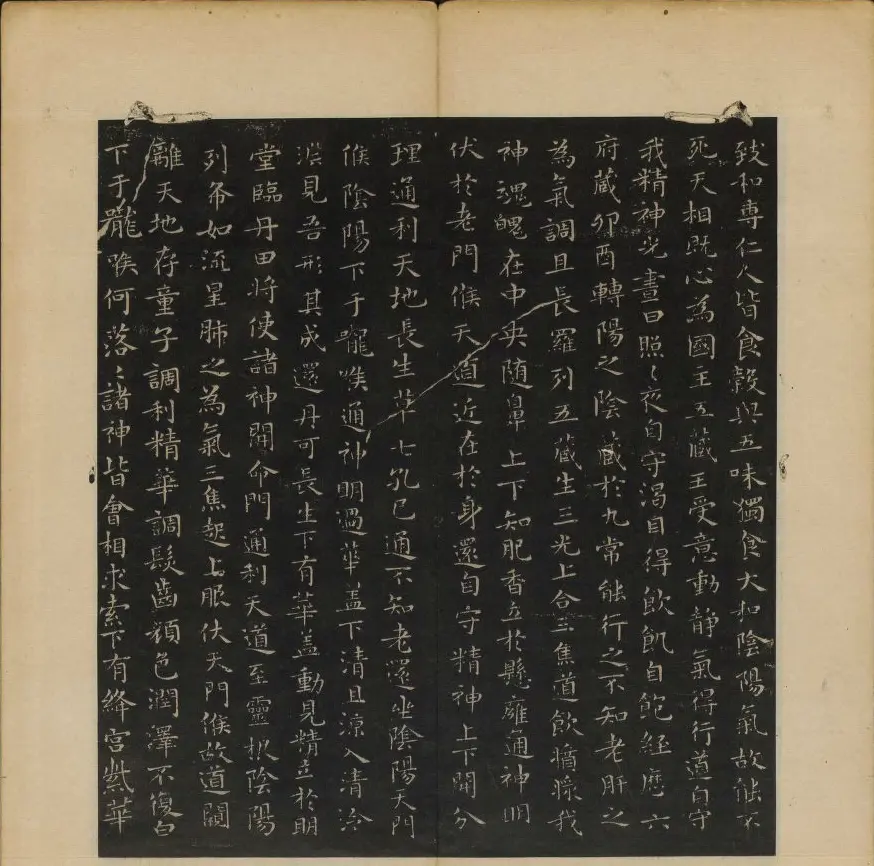 致和專仁人皆食穀與五味獨食大和陰陽氣故能不
死天相既心為國主五藏王受意動靜氣得行道自守
我精神光晝日照〻夜自守渴自得飲飢自飽經歷六
府藏卯酉轉陽之陰藏於九常能行之不知老肝之
為氣調且長羅列五藏生三光上合三焦道飲醬漿我
神魂魄在中央随鼻上下知肥香立於懸癰通神明
伏於老門候天道近在於身還自守精神上下開分
理通利天地長生草七孔已通不知老還坐陰陽天門
候陰陽下于嚨喉通神明過華盖下清且涼入清泠
淵見吾形其成還丹可長生下有華盖動見精立於明
堂臨丹田將使諸神開命門通利天道至靈根陰陽
列布如流星肺之為氣三焦起上服伏天門候故道闚
離天地存童子調利精華調髮齒顏色潤澤不復白
下于嚨喉何落〻諸神皆會相求索下有絳宮紫華